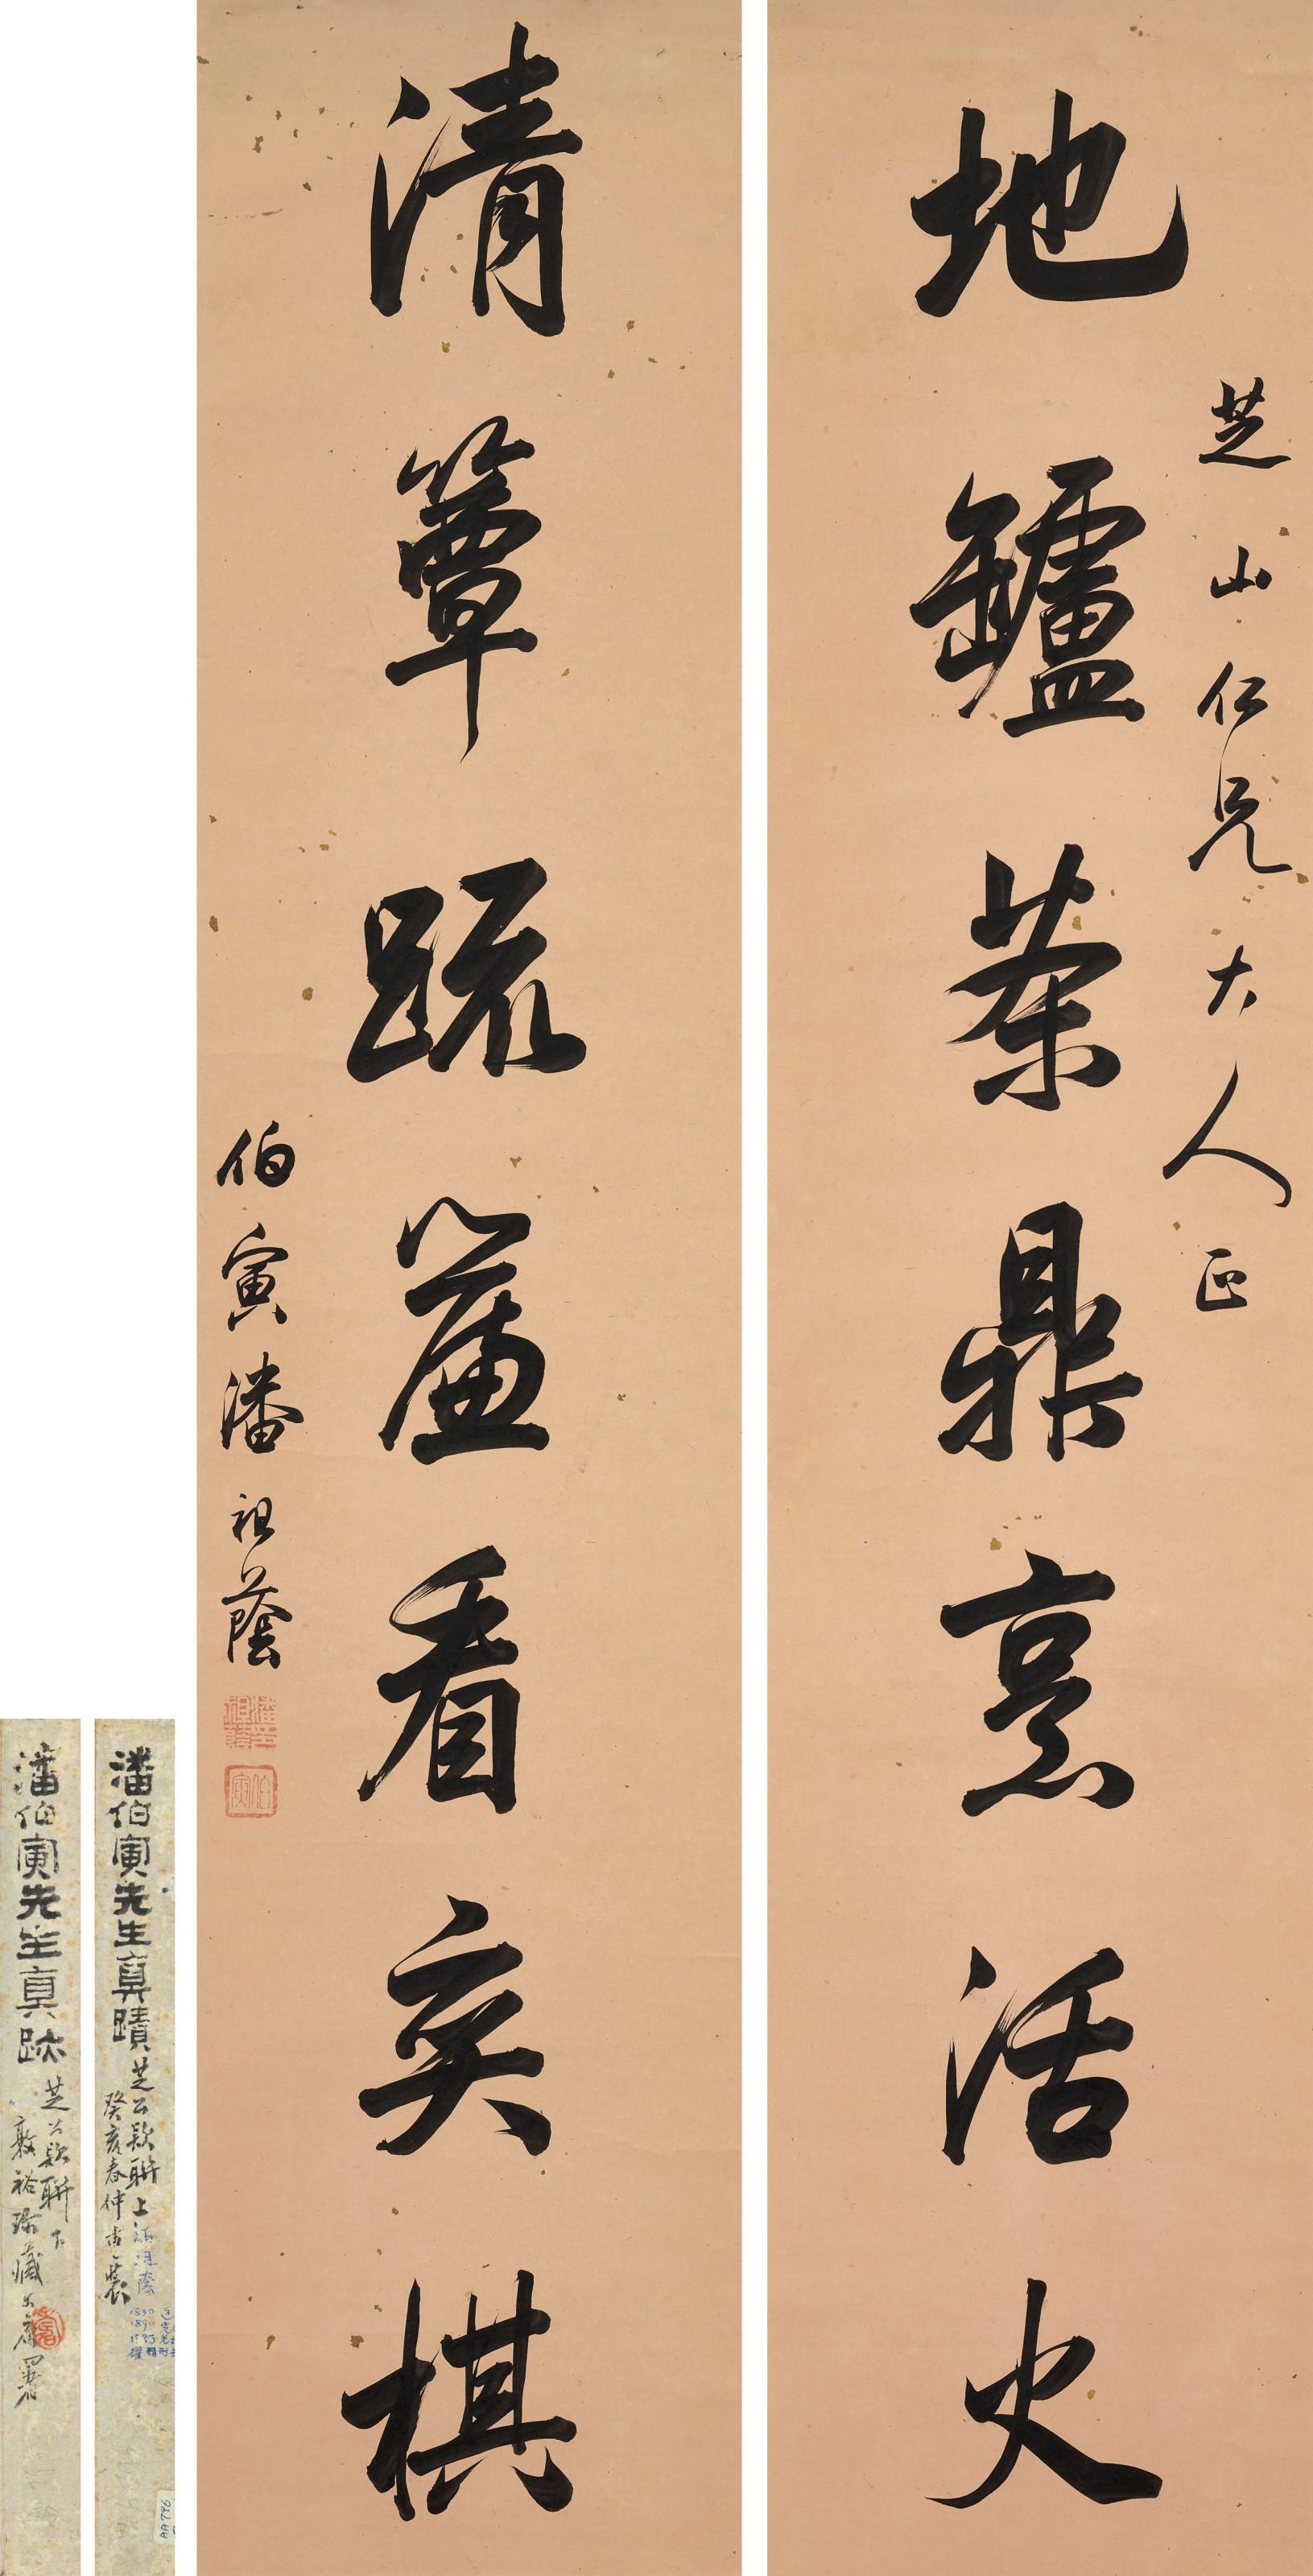 地罏茶鼎烹活火
芝山仁兄大人正
清簟疏簾看奕棋
伯寅潘祖蔭
潘祖蔭
伯寅
潘伯寅先生真蹟
芝公款聯上
癸亥春仲
潘祖蔭
潘伯寅先生真跡
芝公款聯下
敦裕珍藏